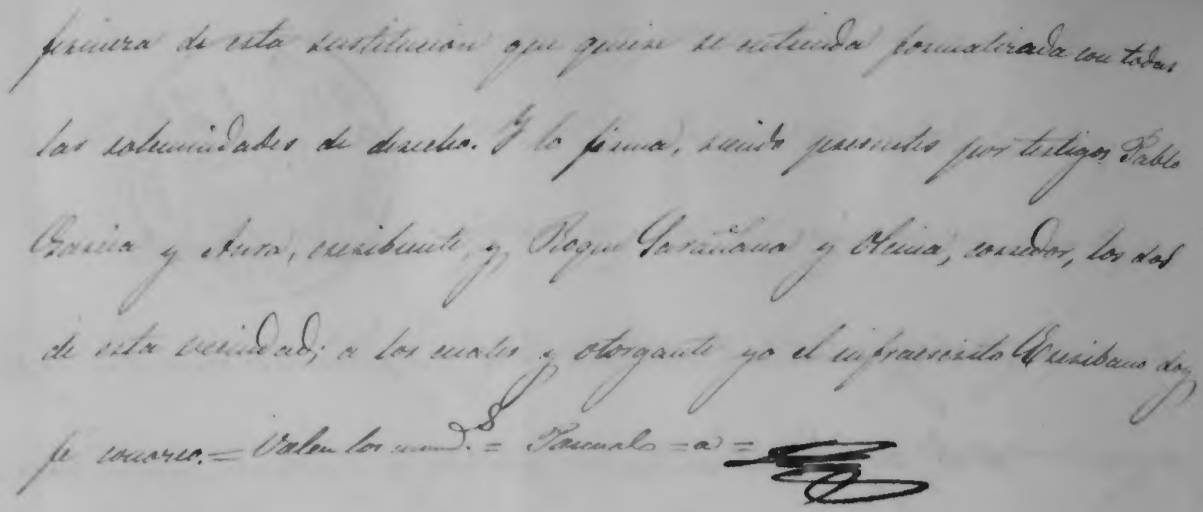 firmeza de esta sustitucion que quiere se entienda formalizada con todas
las solemnidades de derecho. Y lo firma, siendo presentes por testigos Pablo
Garcia y Aura, escribiente, y Roque Garañana y Olcina, corredor, los dos
de esta vecindad; a los cuales y otorgante yo el infraescrito Escribano doy
fe conozco. = Valen los enmd.s = Pascual = a =